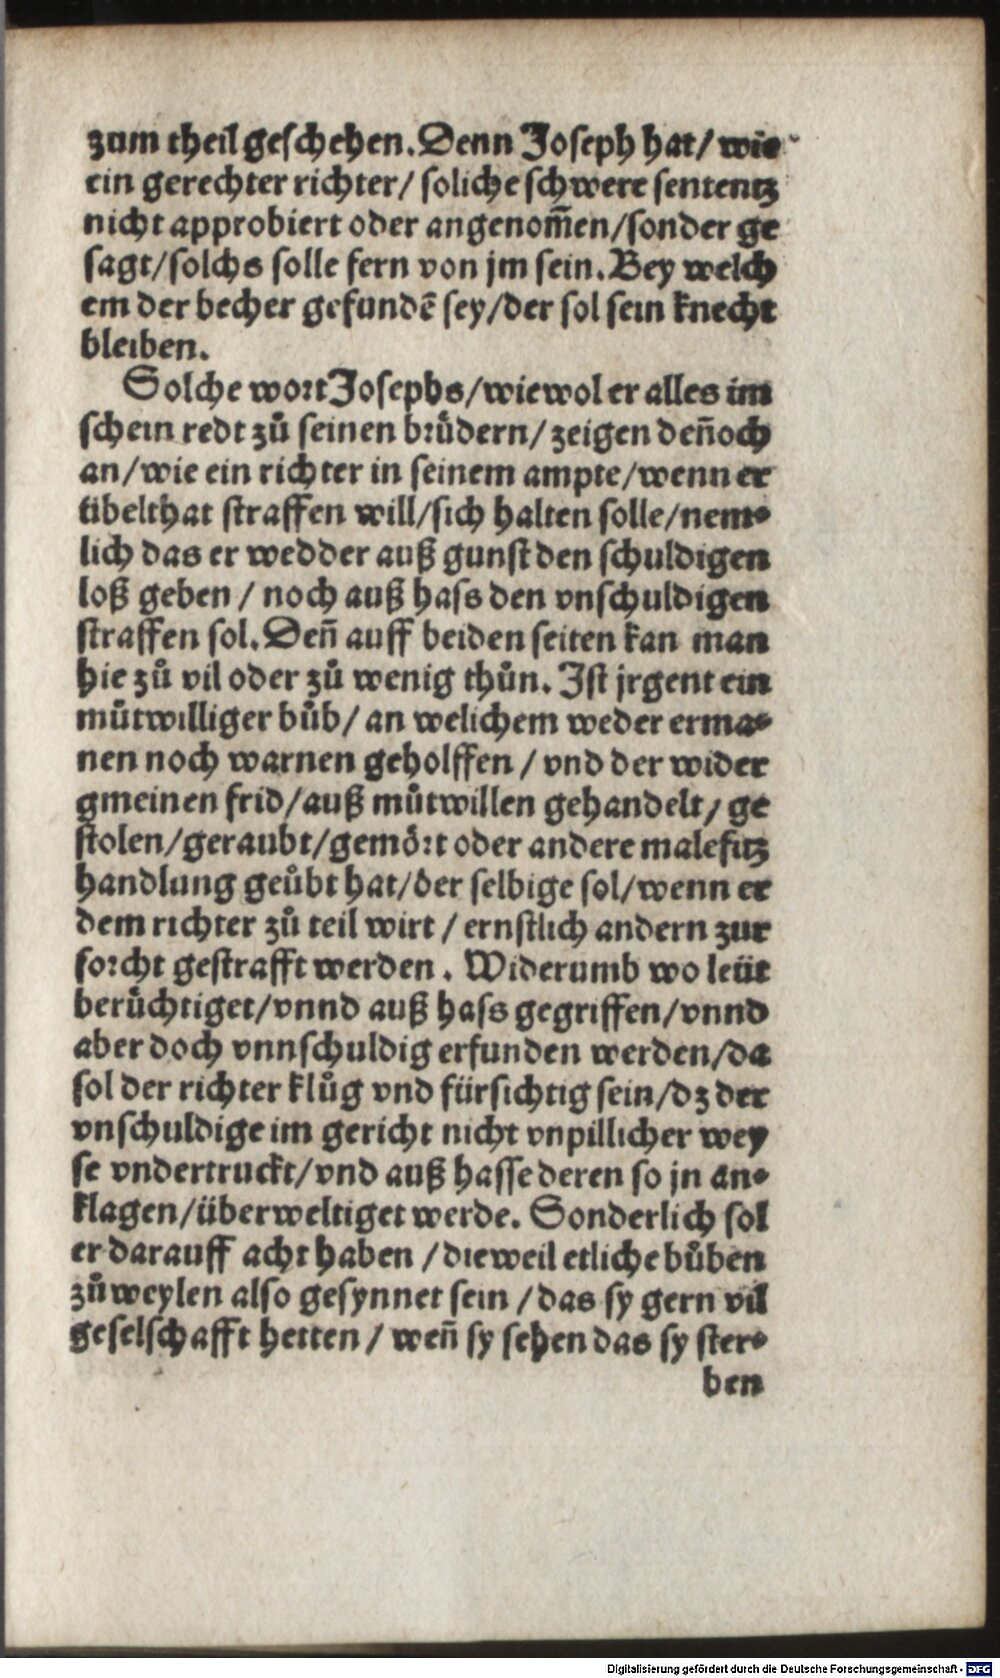 zum theil geschehen. Denn Joseph hat / wie
ein gerechter richter / soliche schwere sententz
nicht approbiert oder angenom̄en / sonder ge
sagt / solchs solle fern von jm sein. Bey welch
em der becher gefundē sey / der sol sein knecht
bleiben.
Solche wort Josephs / wiewol er alles im
schein redt zů seinen brůdern / zeigen den̄och
an / wie ein richter in seinem ampte / wenn er
übelthat straffen will / sich halten solle / nem⸗
lich das er wedder auß gunst den schuldigen
loß geben / noch auß hass den vnschuldigen
straffen sol. Den̄ auff beiden seiten kan man
hie zů vil oder zů wenig thůn. Ist jrgent ein
můtwilliger bůb / an welichem weder erma⸗
nen noch warnen geholffen / vnd der wider
gmeinen frid / auß můtwillen gehandelt / ge
stolen / geraubt / gemört oder andere malefitz
handlung geůbt hat / der selbige sol / wenn er
dem richter zů teil wirt / ernstlich andern zur
forcht gestrafft werden. Widerumb wo leüt
berůchtiget / vnnd auß hass gegriffen / vnnd
aber doch vnnschuldig erfunden werden / da
sol der richter klůg vnd fürsichtig sein / dz der
vnschuldige im gericht nicht vnpillicher wey
se vndertruckt / vnd auß hasse deren so jn an⸗
klagen / überweltiget werde. Sonderlich sol
er darauff acht haben / dieweil etliche bůben
zůweylen also gesynnet sein / das sy gern vil
geselschafft hetten / wen̄ sy sehen das sy ster⸗
ben
Digitalisierung gefördert durch die Deutsche Forschungsgemeinschaft - DFG